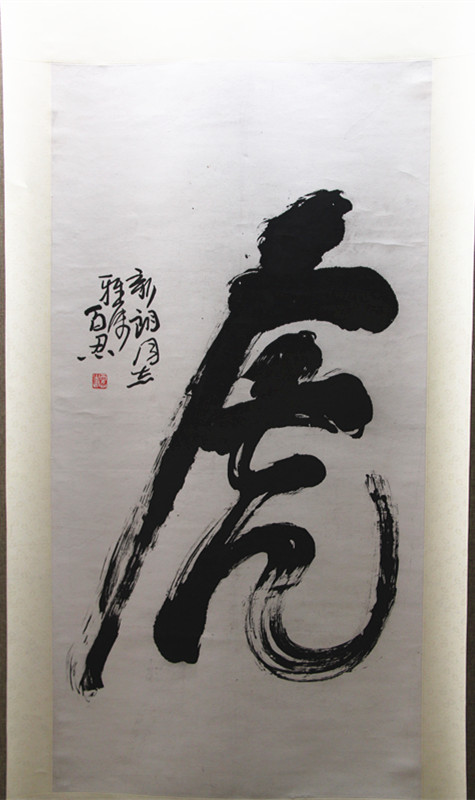 虎
新朗同志
雅属
百忍